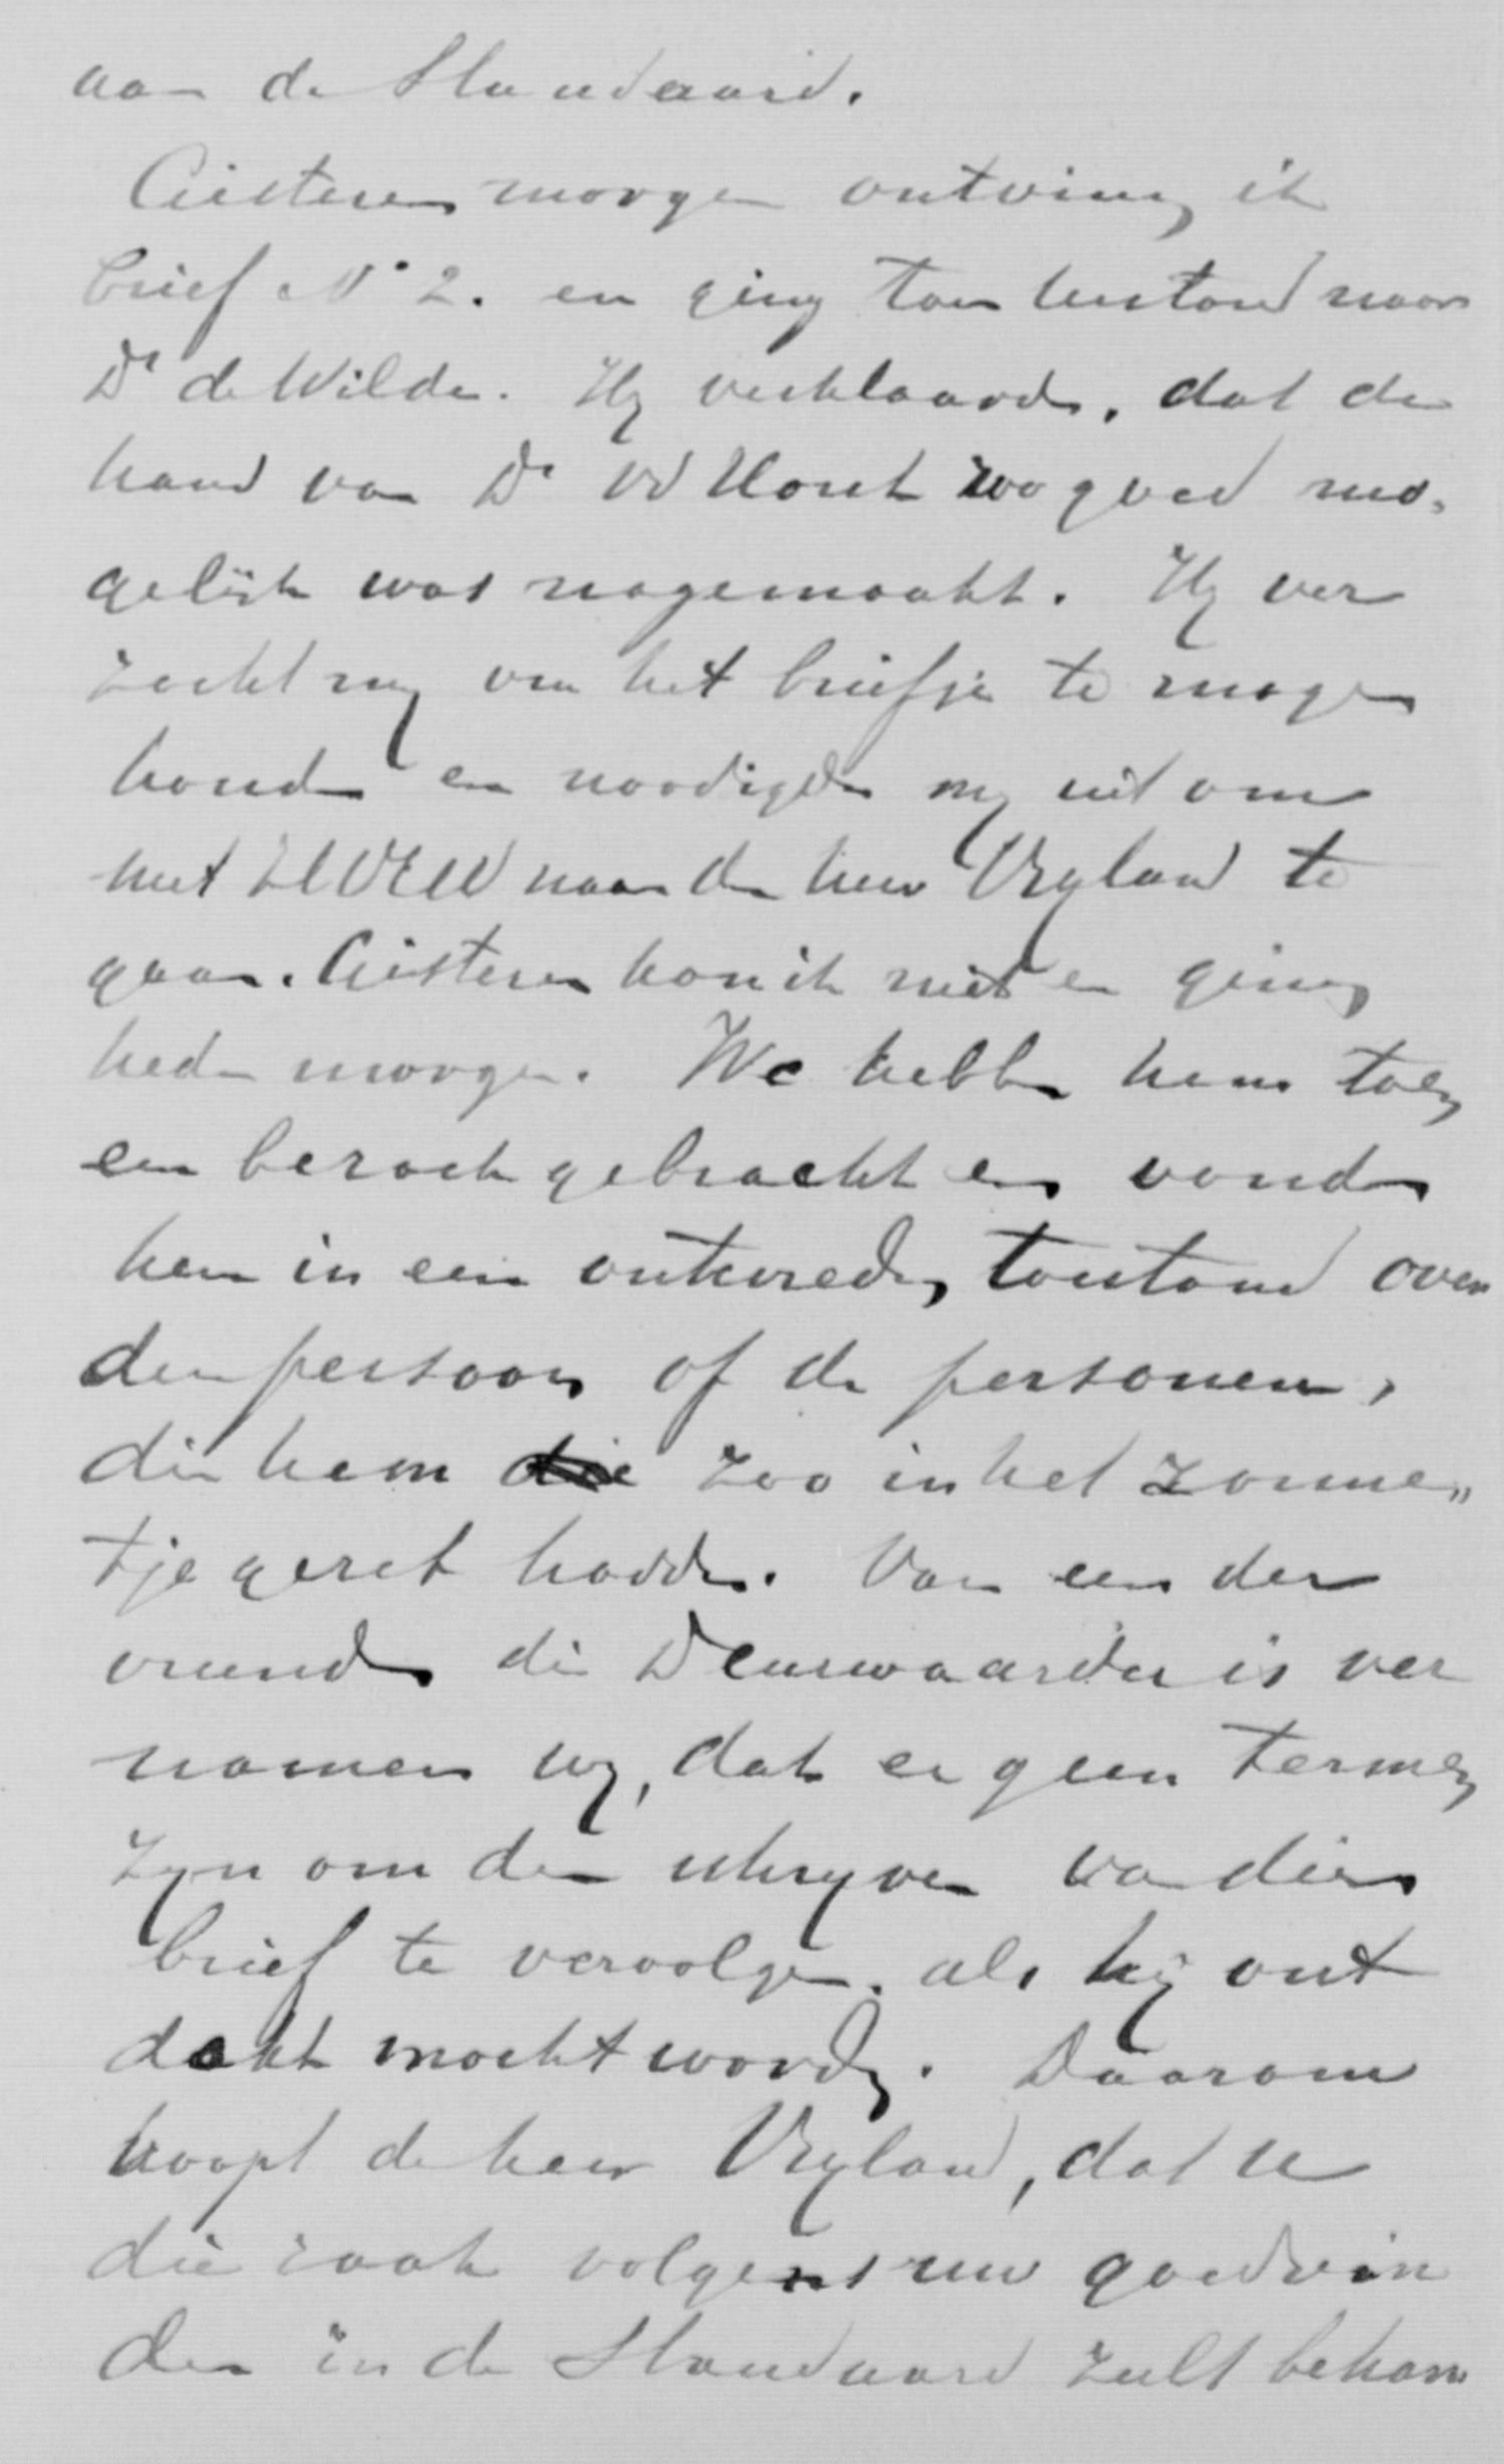 aan de Standaard.
Gisteren morgen ontving ik
brief No 2. en ging toen terstond naar
Ds de Wilde. Hy verklaarde, dat de
hand van Ds vd Horst zoo goed mo-
gelijk was nagemaakt. Hy ver
zocht my om het briefje te mogen
houden en noodigde my uit om
met ZWEW naar den heer Vryland te
gaan. Gisteren kon ik niet en ging
heden morgen. We hebben hem toen
een bezoek gebracht en vonden
hem in een ontevreden toestand over
den persoon of de personen,
die hem die zoo in het zonne„
tje gezet hadden. Van een der
vrienden die Deurwaarder is ver
namen wy, dat er geen termen
zyn om den schryver van dien
brief te vervolgen. als hij ont
dekt mocht worden. Daarom
hoopt de heer Vryland, dat U
die zaak volgens uw goedvin
den in de Standaard zult behan